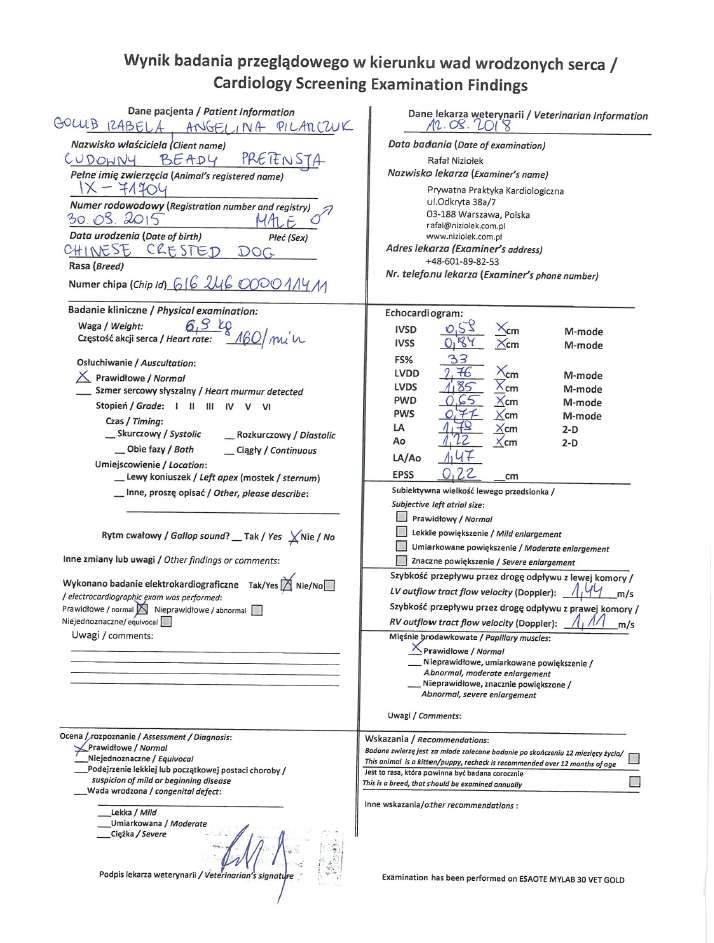 Wynik badania przeglądowego w kierunku wad wrodzonych serca /
Cardiology Screening Examination Findings
Dane pacjenta / Patient Information
GOLUB IZABELA ANGELINA PILARCZUK
Nazwisko właściciela (Client name)
CUDOWNY BEADY PRETENSJA
Pełne imię zwierzęcia (Animal's registered name)
IX-71704
Numer rodowodowy (Registration number and registry)
30.09.2015 MALE ♂
Data urodzenia (Date of birth) Płeć (Sex)
CHINESE CRESTED DOG
Rasa (Breed)
Numer chipa (Chip Id) 616 246 0000 11411
Dane lekarza weterynarii / Veterinarian Information
12.09.2018
Data badania (Date of examination)
Rafał Niziołek
Nazwisko lekarza (Examiner's name)
Prywatna Praktyka Kardiologiczna
ul.Odkryta 38a/7
03-188 Warszawa, Polska
rafal@niziolek.com.pl
www.niziolek.com.pl
Adres lekarza (Examiner's address)
+48-601-89-82-53
Nr. telefonu lekarza (Examiner's phone number)
Badanie kliniczne / Physical examination:
Waga / Weight: 6,9 kg
Częstość akcji serca / Heart rate: 160/min
Osłuchiwanie / Auscultation:
X Prawidłowe / Normal
__ Szmer sercowy słyszalny / Heart murmur detected
Stopień / Grade: I II III IV V VI
Czas / Timing:
__ Skurczowy / Systolic __ Rozkurczowy / Diastolic
__ Obie fazy / Both __ Ciągły / Continuous
Umiejscowienie / Location:
__ Lewy koniuszek / Left apex (mostek / sternum)
__ Inne, proszę opisać / Other, please describe:
Rytm cwałowy / Gallop sound? __ Tak / Yes X Nie / No
Inne zmiany lub uwagi / Other findings or comments:
Wykonano badanie elektrokardiograficzne Tak/Yes X Nie/No
/ electrocardiographic exam was performed:
Prawidłowe / normal X Nieprawidłowe / abnormal
Niejednoznaczne/ equivocal
Uwagi / comments:
Echocardiogram:
IVSD 0,59 X cm M-mode
IVSS 0,84 X cm M-mode
FS% 33
LVDD 2,76 X cm M-mode
LVDS 1,85 X cm M-mode
PWD 0,65 X cm M-mode
PWS 0,77 X cm M-mode
LA 1,79 X cm 2-D
Ao 1,22 X cm 2-D
LA/Ao 1,47
EPSS 0,22 __cm
Subiektywna wielkość lewego przedsionka /
Subjective left atrial size:
Prawidłowy / Normal
Lekkie powiększenie / Mild enlargement
Umiarkowane powiększenie / Moderate enlargement
Znaczne powiększenie / Severe enlargement
Szybkość przepływu przez drogę odpływu z lewej komory /
LV outflow tract flow velocity (Doppler): 1,44 m/s
Szybkość przepływu przez drogę odpływu z prawej komory /
RV outflow tract flow velocity (Doppler): 1,11 m/s
Mięśnie brodawkowate / Papillary muscles:
X Prawidłowe / Normal
__ Nieprawidłowe, umiarkowane powiększenie /
Abnormal, moderate enlargement
__ Nieprawidłowe, znacznie powiększone /
Abnormal, severe enlargement
Uwagi / Comments:
Ocena / rozpoznanie / Assessment / Diagnosis:
X Prawidłowe / Normal
__Niejednoznaczne / Equivocal
__Podejrzenie lekkiej lub początkowej postaci choroby /
suspicion of mild or beginning disease
__Wada wrodzona / congenital defect:
__Lekka / Mild
__Umiarkowana / Moderate
__Ciężka / Severe
Podpis lekarza weterynarii / Veterinarian's signature
Wskazania / Recommendations:
Badane zwierzę jest za młode zalecane badanie po skończeniu 12 miesięcy życia/
This animal is a kitten/puppy, recheck is recommended over 12 months of age
Jest to rasa, która powinna być badana corocznie
This is a breed, that should be examined annually
Inne wskazania/other recommendations :
Examination has been performed on ESAOTE MYLAB 30 VET GOLD